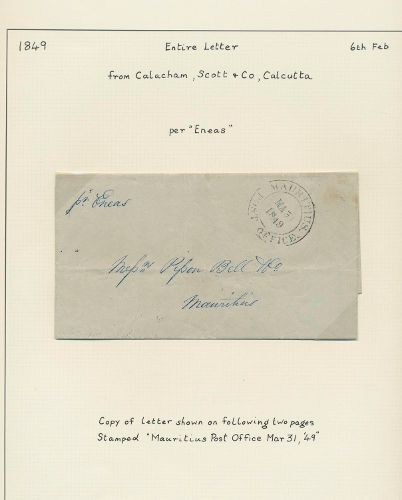 1849 Entire Letter 6th Feb
from Calacham, Scott & Co, Calcutta
per "Eneas"
pr Eneas
POST MAURITIUS
MA 31
1849
OFFICE.
Messrs Pipon Bell & Co
Mauritius
Copy of letter shown on following two pages
Stamped "Mauritius Post Office Mar 31, '49"